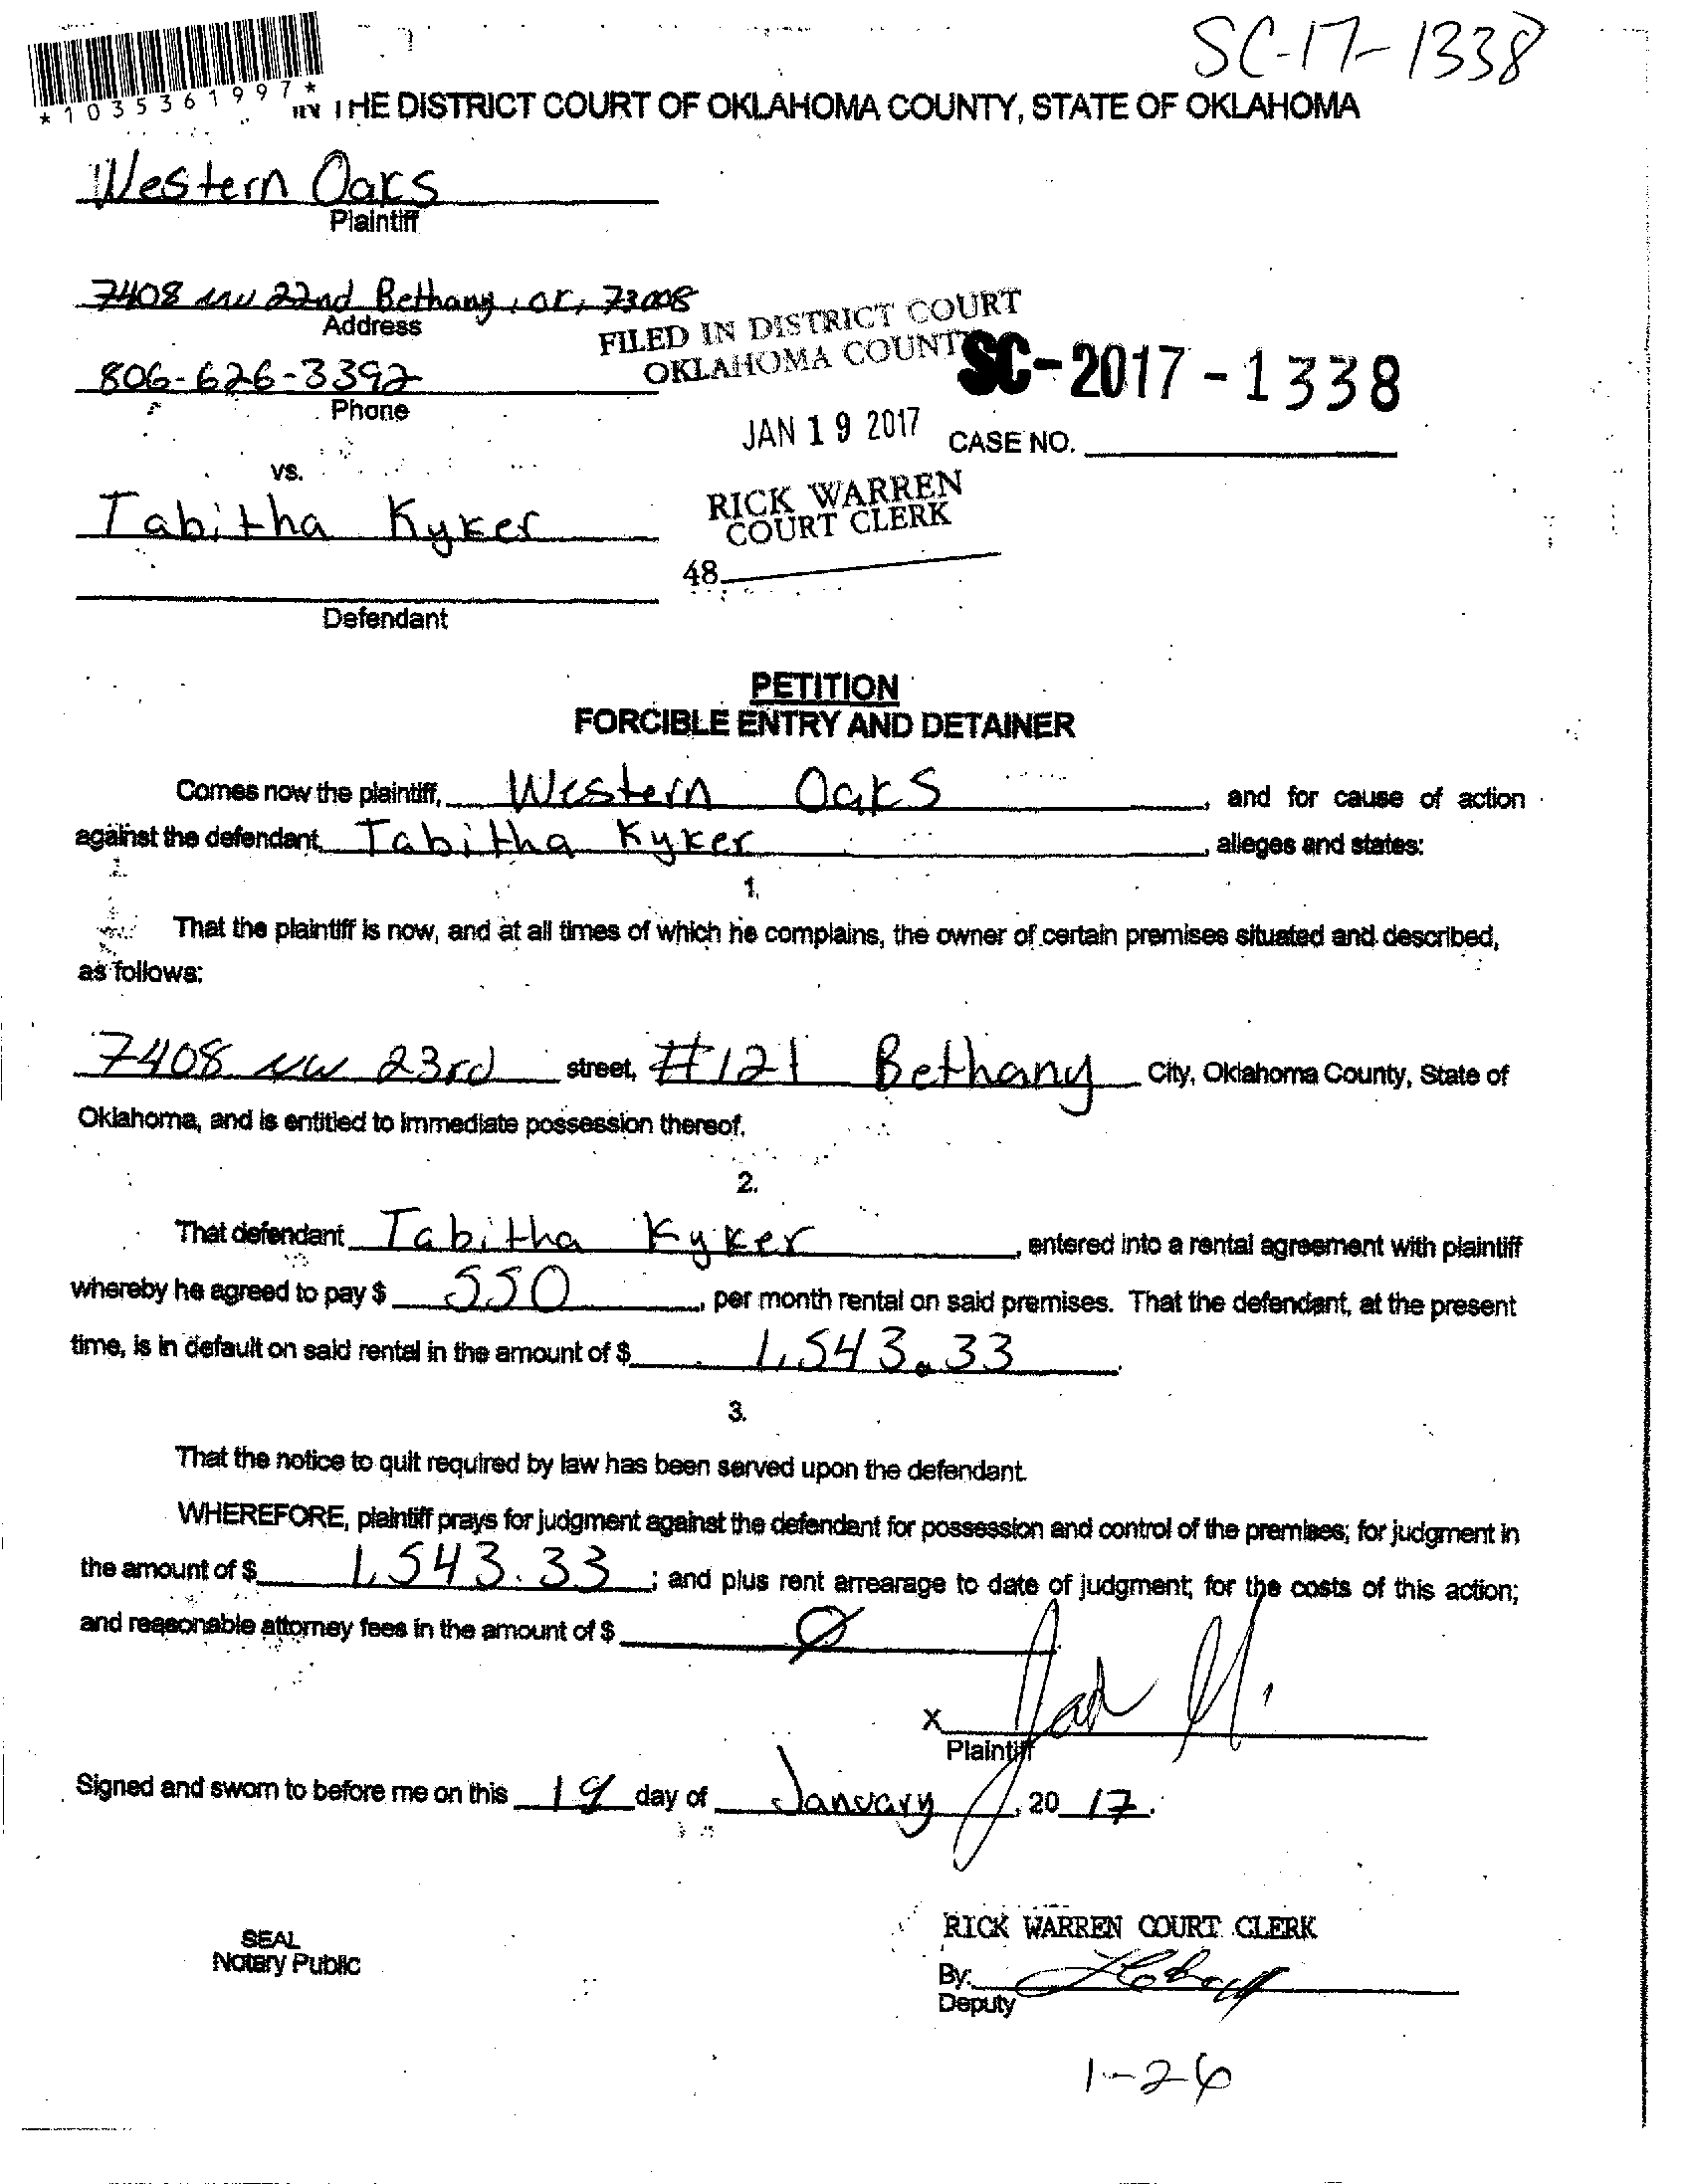 SC-17-1338
*1035361997*
IN THE DISTRICT COURT OF OKLAHOMA COUNTY, STATE OF OKLAHOMA
Western Oaks
Plaintiff
7408 nw 22nd Bethany, OK, 73008
Address
FILED IN DISTRICT COURT
OKLAHOMA COUNTY
SC-2017-1338
806-626-3392
Phone
JAN 19 2017
CASE NO.
vs.
Tabitha Kyker
RICK WARREN
COURT CLERK
48
Defendant
PETITION
FORCIBLE ENTRY AND DETAINER
Comes now the plaintiff, Western Oaks, and for cause of action
against the defendant, Tabitha Kyker, alleges and states:
1.
That the plaintiff is now, and at all times of which he complains, the owner of certain premises situated and described,
as follows:
7408 nw 23rd street, #121 Bethany City, Oklahoma County, State of
Oklahoma, and is entitled to immediate possession thereof.
2.
That defendant Tabitha Kyker, entered into a rental agreement with plaintiff
whereby he agreed to pay $ 550, per month rental on said premises. That the defendant, at the present
time, is in default on said rental in the amount of $ 1,543.33.
3.
That the notice to quit required by law has been served upon the defendant.
WHEREFORE, plaintiff prays for judgment against the defendant for possession and control of the premises; for judgment in
the amount of $ 1,543.33; and plus rent arrearage to date of judgment; for the costs of this action;
and reasonable attorney fees in the amount of $ Ø
X
Plaintiff
Signed and sworn to before me on this 19 day of January, 20 17.
RICK WARREN COURT CLERK
SEAL
Notary Public
By:
Deputy
1-26